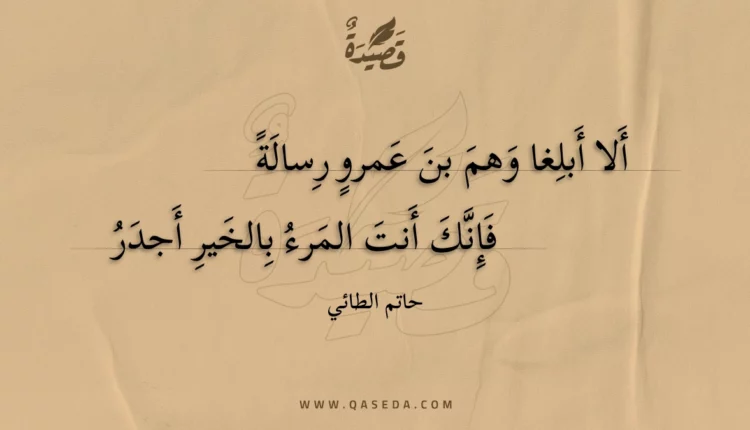 قَصِيدَةٌ
أَلا أَبلِغا وَهمَ بنَ عَمروٍ رِسالَةً
فَإِنَّكَ أَنتَ المَرءُ بِالخَيرِ أَجدَرُ
حاتم الطائي
WWW.QASEDA.COM